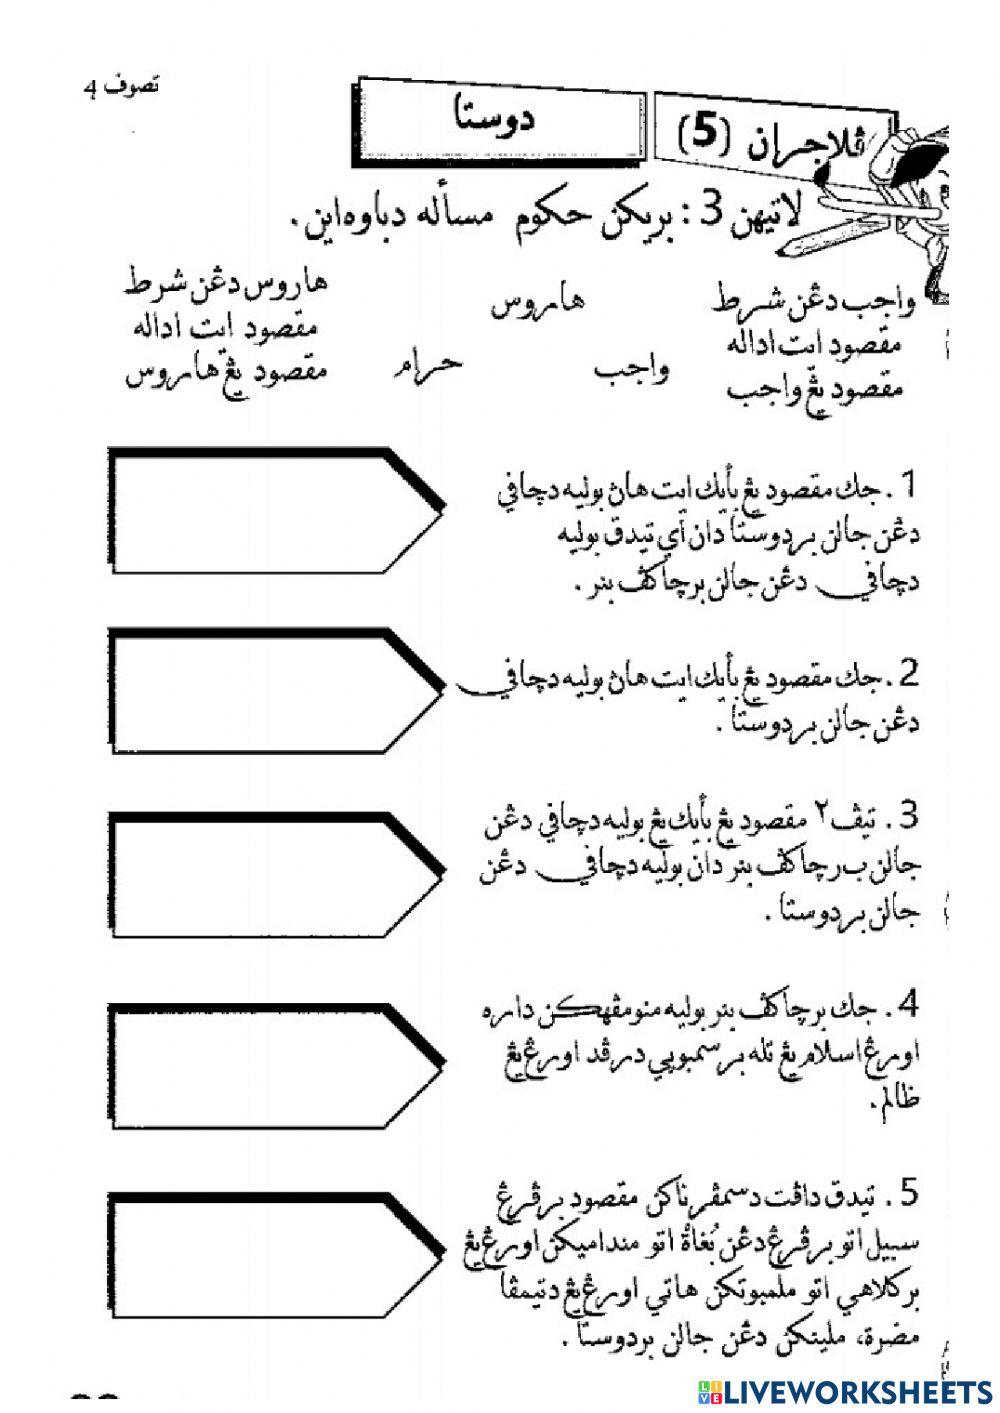 تصوف 4
ڤلاجران (5)
دوستا
لاتيهن 3 : بريكن حكوم مسأله دباوه اين .
واجب دڠن شرط
مقصود ايت اداله
مقصود يڠ واجب
هاروس
واجب
حرام
هاروس دڠن شرط
مقصود ايت اداله
مقصود يڠ هاروس
1 . جك مقصود يڠ بأيك ايت هاڽ بوليه دچافي
دڠن جالن بردوستا دان اي تيدق بوليه
دچافي دڠن جالن برچاكڤ بنر .
2 . جك مقصود يڠ بأيك ايت هاڽ بوليه دچافي
دڠن جالن بردوستا .
3 . تيڤ٢ مقصود يڠ بأيك يڠ بوليه دچافي دڠن
جالن برچاكڤ بنر دان بوليه دچافي دڠن
جالن بردوستا .
4 . جك برچاكڤ بنر بوليه منومڤهكن داره
اورڠ اسلام يڠ تله برسمبوڽي درڤد اورڠ يڠ
ظالم.
5 . تيدق داڤت دسمڤرناكن مقصود برڤرڠ
سبيل اتو برڤرڠ دڠن بُغاة اتو منداميكن اورڠ يڠ
بركلاهي اتو ملمبوتكن هاتي اورڠ يڠ دتيمڤا
مضرة، ملينكن دڠن جالن بردوستا .
LIVEWORKSHEETS